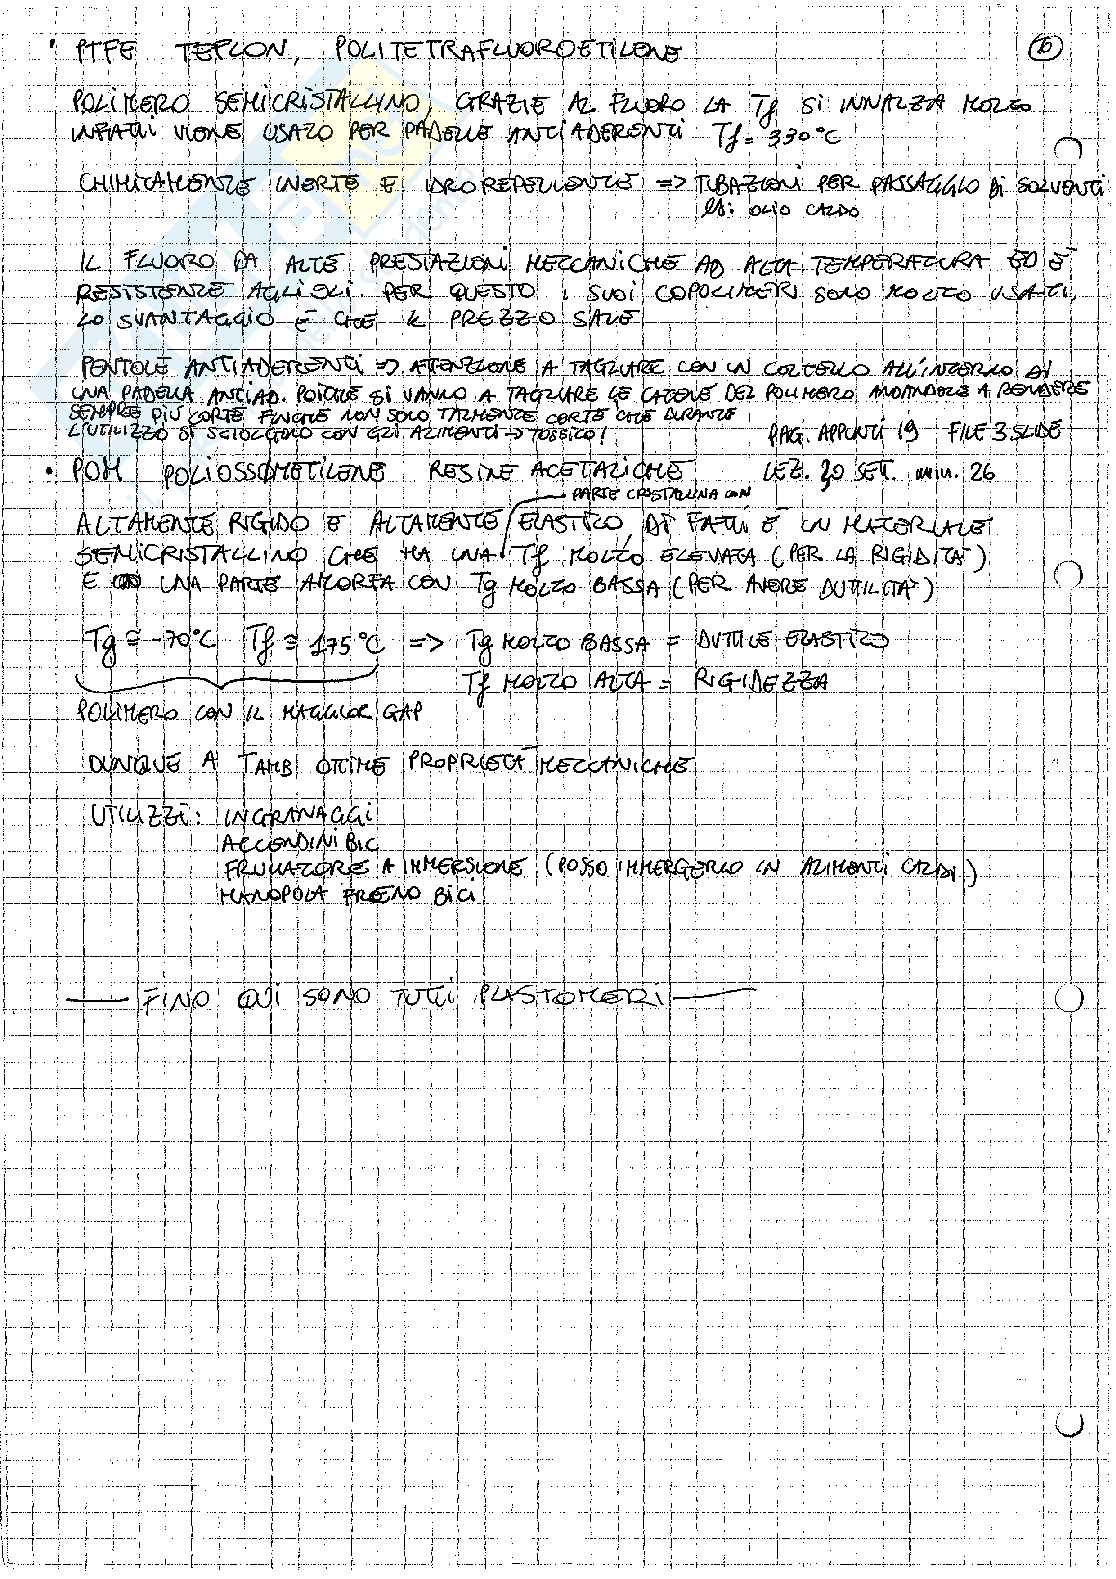 • PTFE TEFLON, POLITETRAFLUOROETILENE
POLIMERO SEMICRISTALLINO, GRAZIE AL FLUORO LA Tf SI INNALZA MOLTO
INFATTI VIENE USATO PER PADELLE ANTIADERENTI Tf = 330°C
CHIMICAMENTE INERTE E IDROREPELLENTE => TUBAZIONI PER PASSAGGIO DI SOLVENTI
ES: OLIO CALDO
IL FLUORO DA ALTE PRESTAZIONI MECCANICHE AD ALTA TEMPERATURA ED È
RESISTENZE AGLI OLI. PER QUESTO I SUOI COPOLIMERI SONO MOLTO USATI,
LO SVANTAGGIO È CHE IL PREZZO SALE
PENTOLE ANTIADERENTI => ATTENZIONE A TAGLIARE CON UN COLTELLO ALL'INTERNO DI
UNA PADELLA ANTIAD. POICHÈ SI VANNO A TAGLIARE LE CATENE DEL POLIMERO ANDANDOLE A RENDERE
SEMPRE PIÙ CORTE FINCHÈ NON SOLO TALMENTE CORTE CHE DURANTE
L'UTILIZZO SI SCIOLGONO CON GLI ALIMENTI → TOSSICO!
PAG. APPUNTI 19 FILE 3 SLIDE
• POM POLIOSSOMETILENE RESINE ACETALICHE LEZ. 30 SET. min. 26
PARTE CRISTALLINA CON
ALTAMENTE RIGIDO E ALTAMENTE ELASTICO, DI FATTI È UN MATERIALE
SEMICRISTALLINO CHE HA UNA Tf MOLTO ELEVATA (PER LA RIGIDITÀ)
E UNA PARTE AMORFA CON Tg MOLTO BASSA (PER AVERE DUTTILITÀ)
Tg ≅ -70°C Tf ≅ 175°C => Tg MOLTO BASSA = DUTTILE ELASTICO
Tf MOLTO ALTA = RIGIDEZZA
POLIMERO CON IL MAGGIOR GAP
DUNQUE A TAMB OTTIME PROPRIETÀ MECCANICHE
UTILIZZI: INGRANAGGI
ACCENDINI BIC
FRULLATORE A IMMERSIONE (POSSO IMMERGERLO IN ALIMENTI CALDI)
MANOPOLA FRENO BICI
— FINO QUI SONO TUTTI PLASTOMERI —